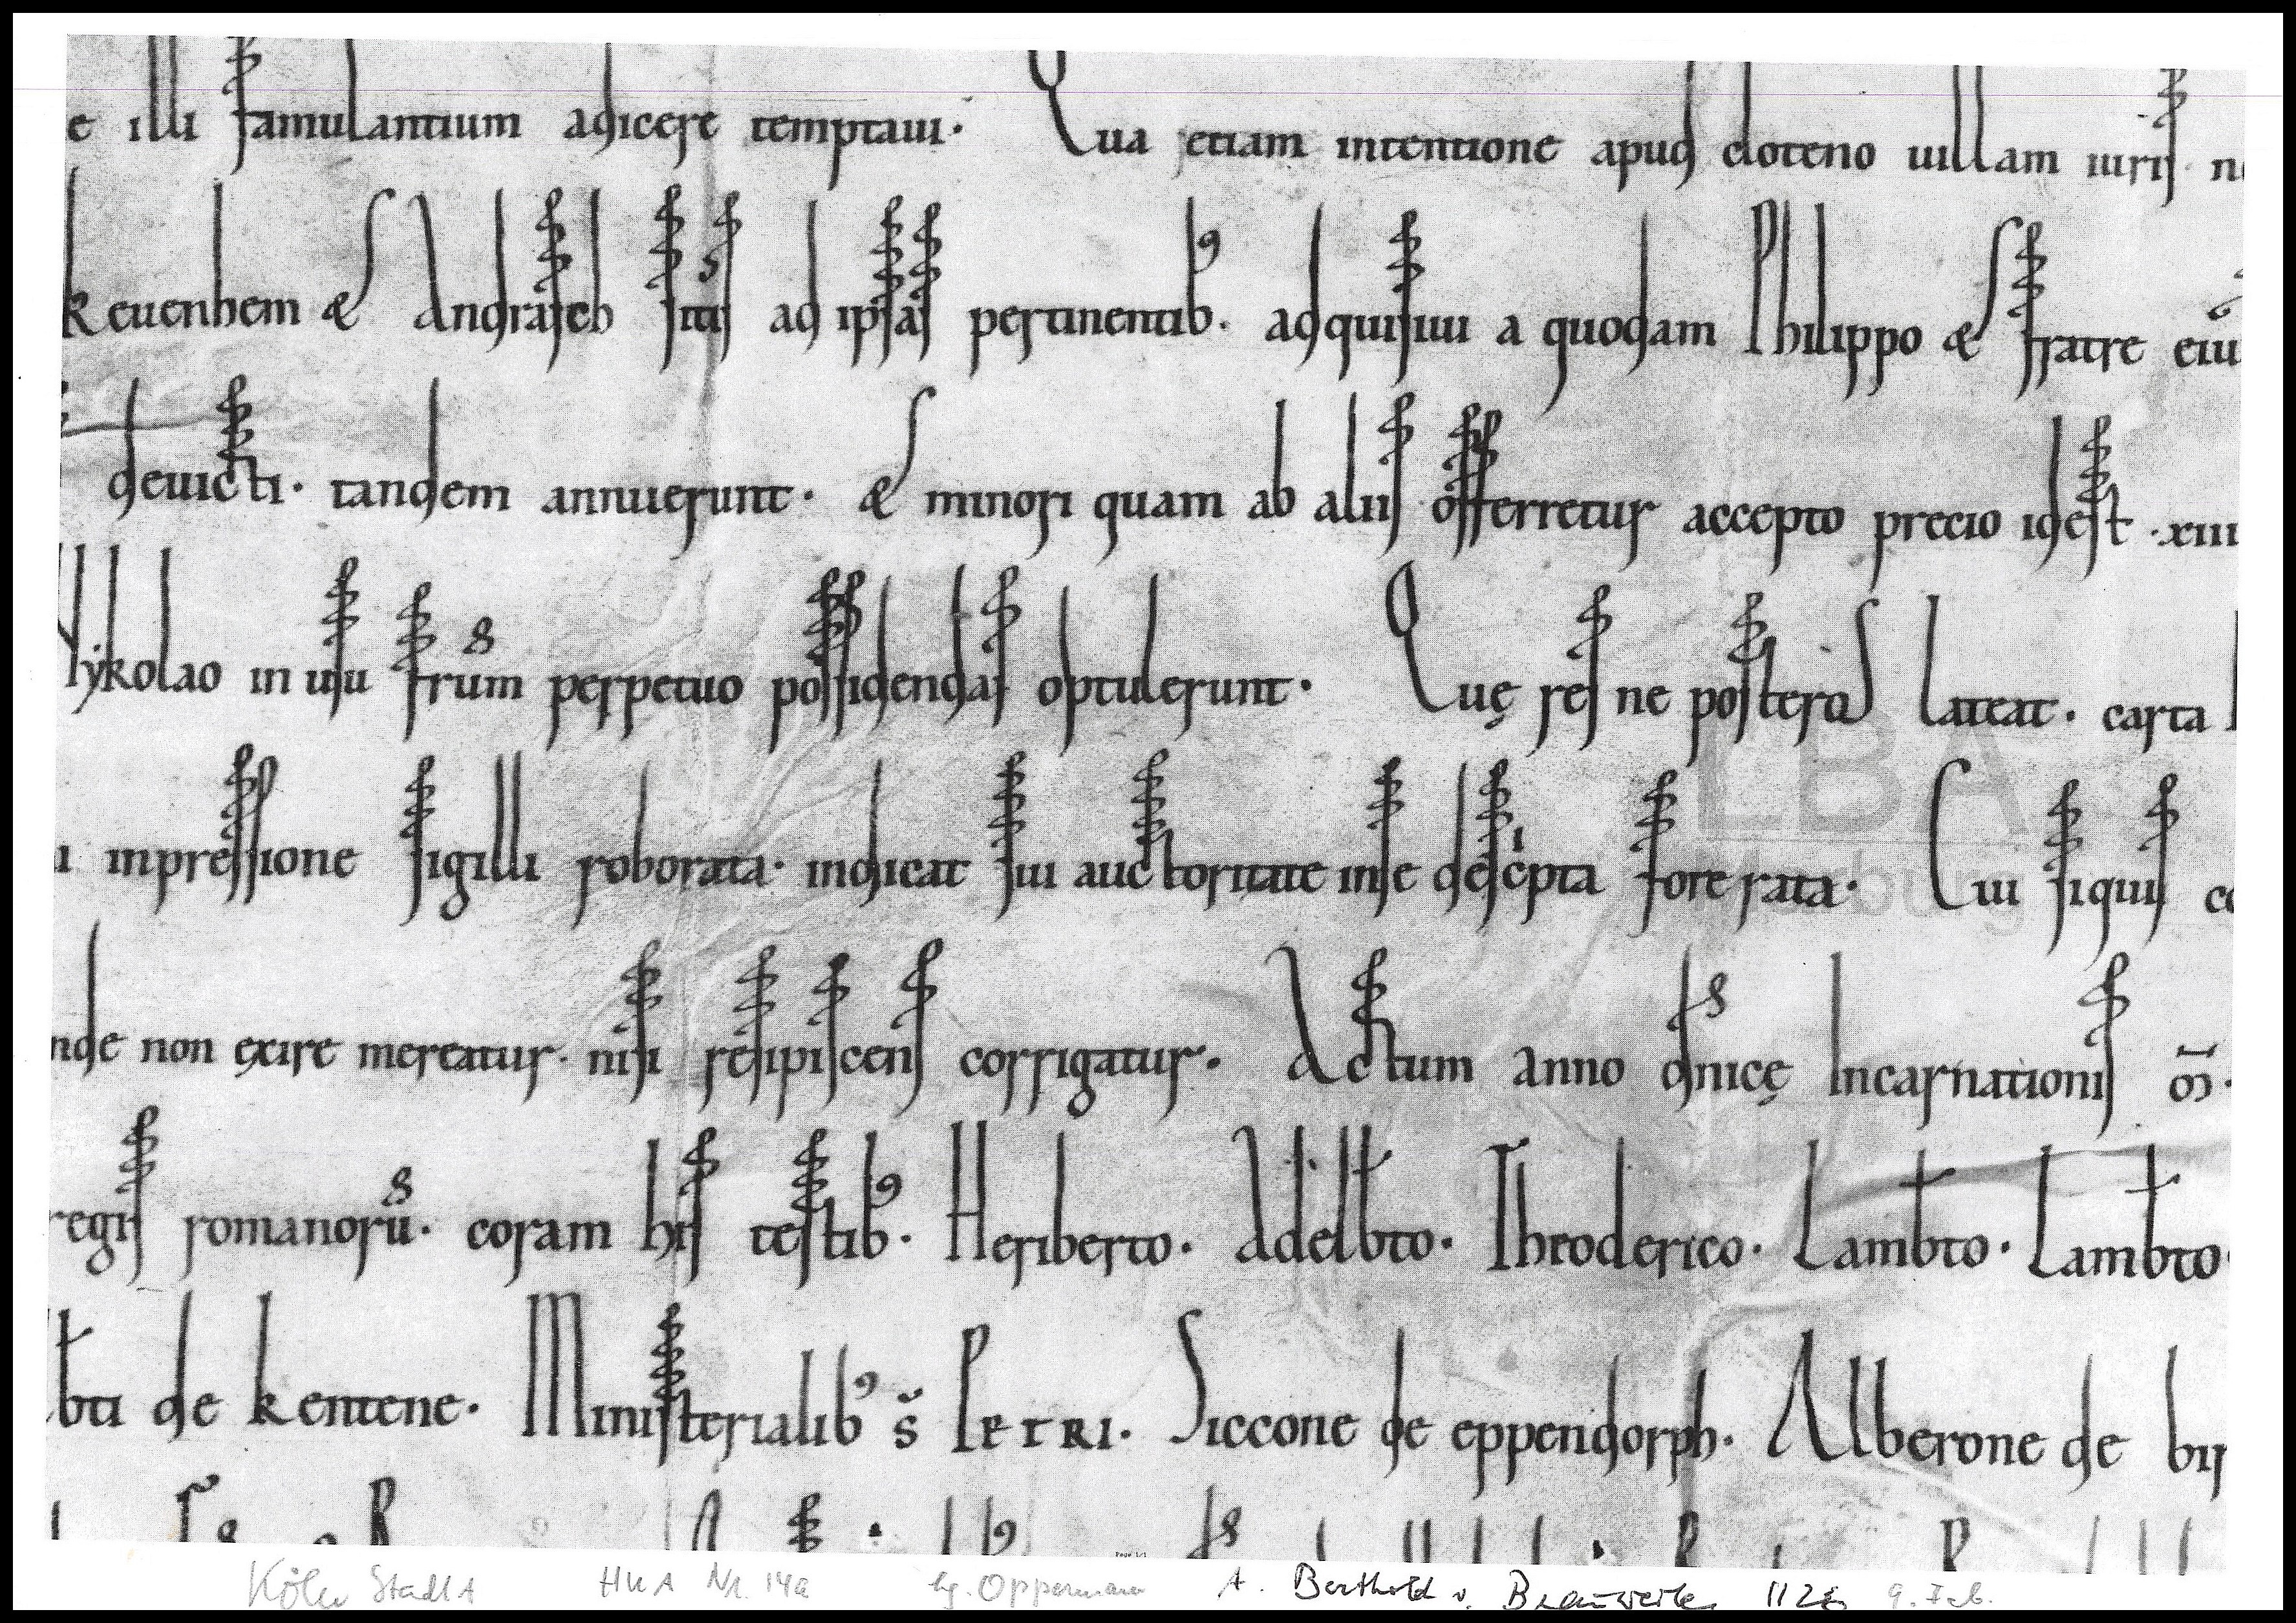 e illi famulantium adicere temptaui. Qua etiam intentione apud cloteno uillam iuris
keuenhem & Andraseb sitis ad ipsas pertinentib⁹. adquisiui a quodam Philippo & fratre eiu
deuicti. tandem annuerunt. & minori quam ab aliis offerretur accepto precio idest .xiii
Nẏkolao in usu frum perpetuo possidendas optulerunt. Quę res ne posteros lateat. carta
i inpressione sigilli roborata. indicat sui auctoritate in se descⁱpta fore rata. Cui siquis co
nde non exire mereatur. nisi resipiscens corrigatur. Actum anno dnicę Incarnationis ō.
regis romanorū. coram his testib⁹. Heriberto. Adelbto. Theoderico. Lambto. Lambto.
bti de kentene. Ministerialib⁹ s̄ PETRI. Siccone de eppendorph. Alberone de
LBA
Marburg
Page 1/1
Köln StadtA HUA Nr. 14a Lg. Oppermann A. Berthold v. Brauweiler 9. Feb.